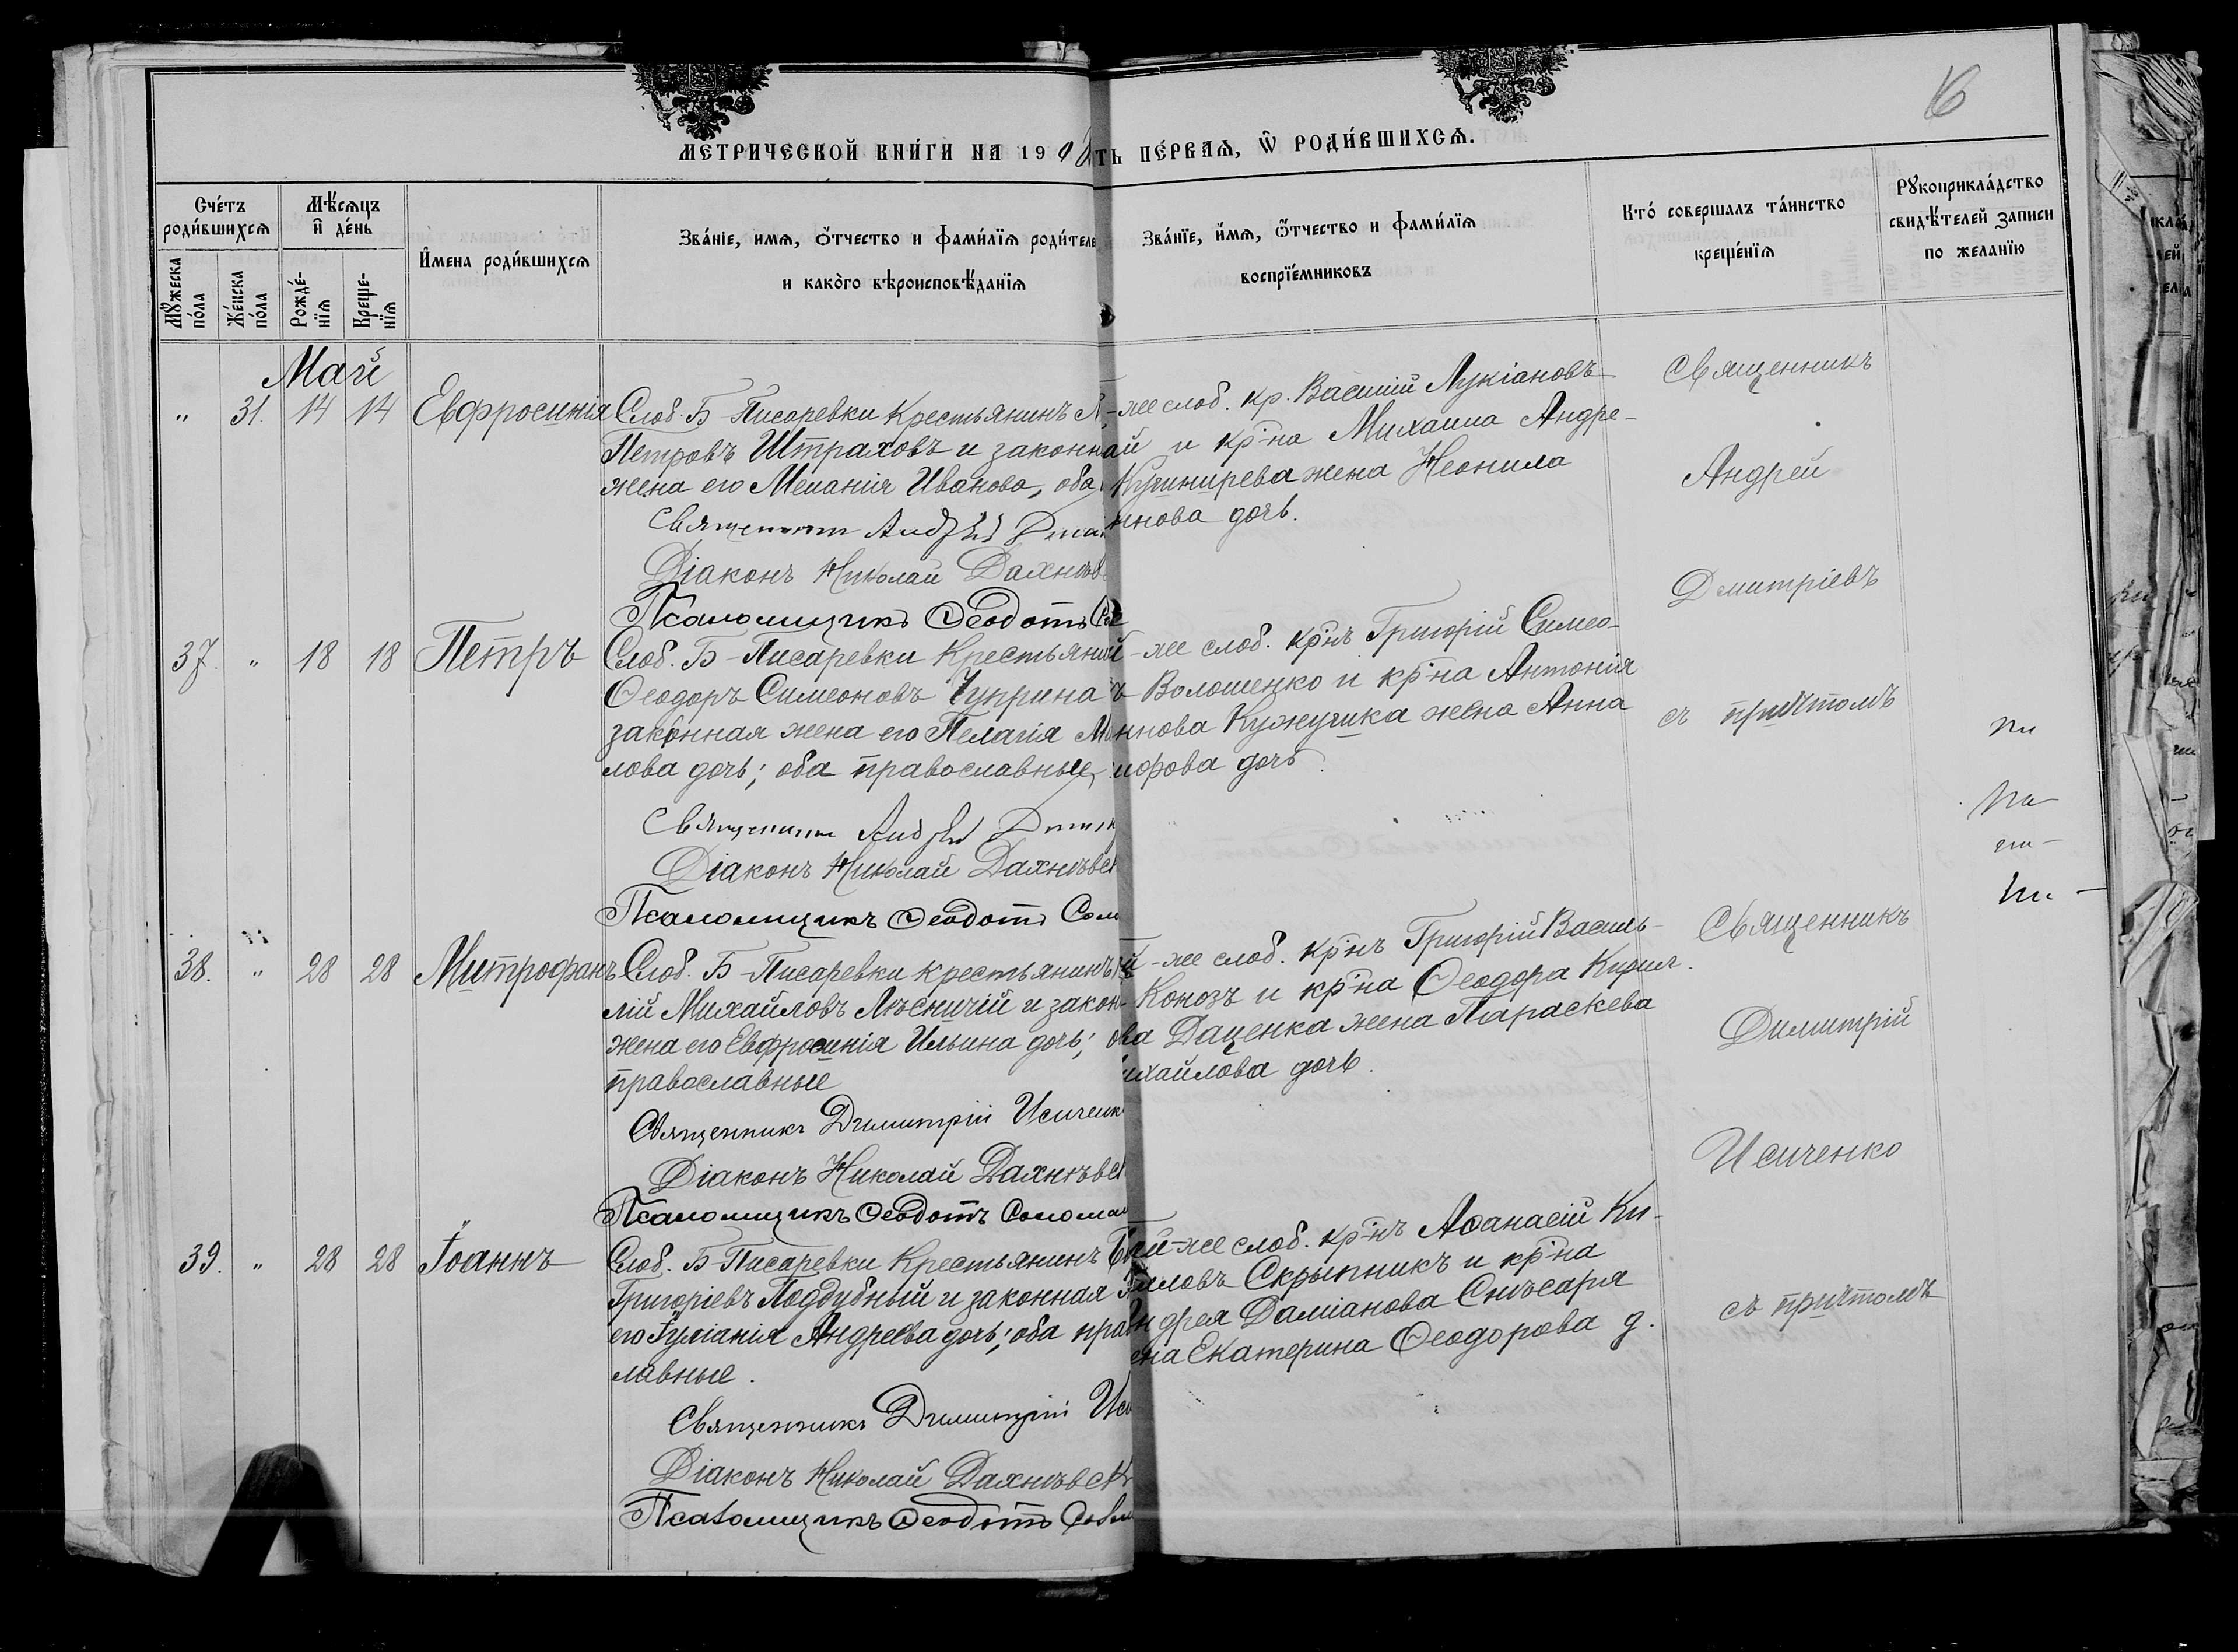 МЕТРИЧЕСКОЙ КНИГИ НА 19
ть ПЕРВАЯ, Ѿ РОДИВШИХСЯ.
Счетъ родившихся
Мѣсяцъ и день
Имена родившихся
Званіе, имя, отчество и фамилія родителе
и какого вѣроисповѣданія
Мужеска пола
Женска пола
Рожденія
Крещенія
Званіе, имя, отчество и фамилія
воспріемниковъ
Кто совершалъ таинство
крещенія
Рукоприкладство
свидѣтелей записи
по желанію
Май
" 31. 14 14 Евфросинія
Слоб. Б-Писаревки Крестьянинъ
Петровъ Штраховъ и законн
жена его Меланія Иванова, оба
Священникъ Андрей
Діаконъ Николай Дахнѣв
Псаломщикъ Ѳеодотъ
-же слоб. кр. Василій Лукіановъ
й и кр-на Михаила Андре-
Кушнирева жена Неонила
ннова дочь.
Священникъ
Андрей
Димитріевъ
съ причтомъ
37. " 18 18 Петръ
Слоб. Б-Писаревки Крестьяни
Ѳеодоръ Симеоновъ Чуприна
законная жена его Пелагія М
лова дочь; оба православные
Священникъ Андрей
Діаконъ Николай Дахнѣвс
Псаломщикъ Ѳеодотъ Соло
й-же слоб. кр-нъ Григорій Симео-
ъ Волошенко и кр-на Антонія
ннова Кужучика жена Анна
дочь.
38. " 28 28 Митрофанъ
Слоб. Б-Писаревки крестьянинъ
лій Михайловъ Лѣсничій и закон
жена его Евфросинія Ильина дочь; о
православные
Священникъ Димитрій Исиченк
Діаконъ Николай Дахнѣвс
Псаломщикъ Ѳеодотъ Солома
й-же слоб. кр-нъ Григорій Василь-
Конозъ и кр-на Ѳеодора Кирил.
ва Даценка жена Параскева
ихайлова дочь.
Священникъ
Димитрій
Исиченко
съ причтомъ
39. " 28 28 Іоаннъ
Слоб. Б-Писаревки Крестьянинъ
Григоріевъ Поддубный и законная
его Іуліанія Андреева дочь; оба прав
лавные.
Священникъ Димитрій Иси
Діаконъ Николай Дахнѣвск
Псаломщикъ Ѳеодотъ
й-же слоб. кр-нъ Аѳанасій Ки-
ловъ Скрыпникъ и кр-на
дрея Даміанова Снѣсаря
ена Екатерина Ѳеодорова д.